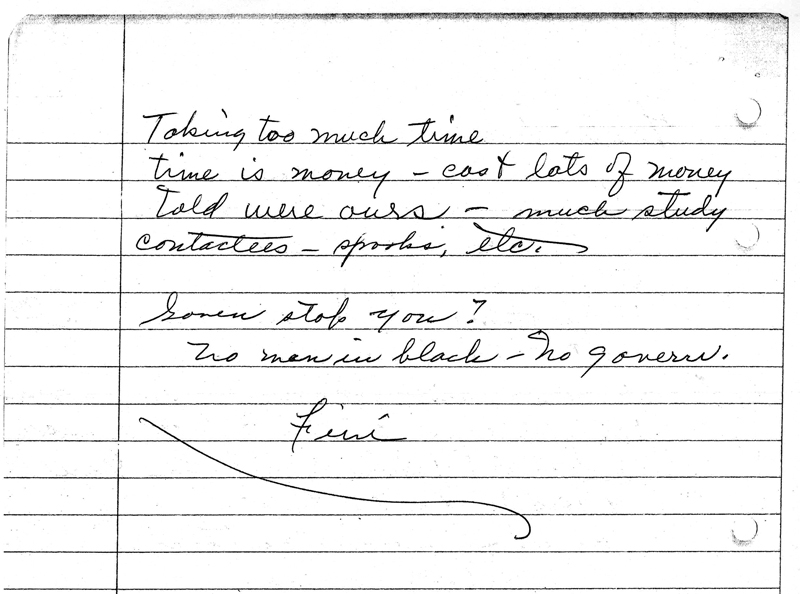 Taking too much time
time is money – cost lots of money
Told were ours – much study
contactees – spooks, etc.
Govern stop you?
No men in black – No govern.
Fini